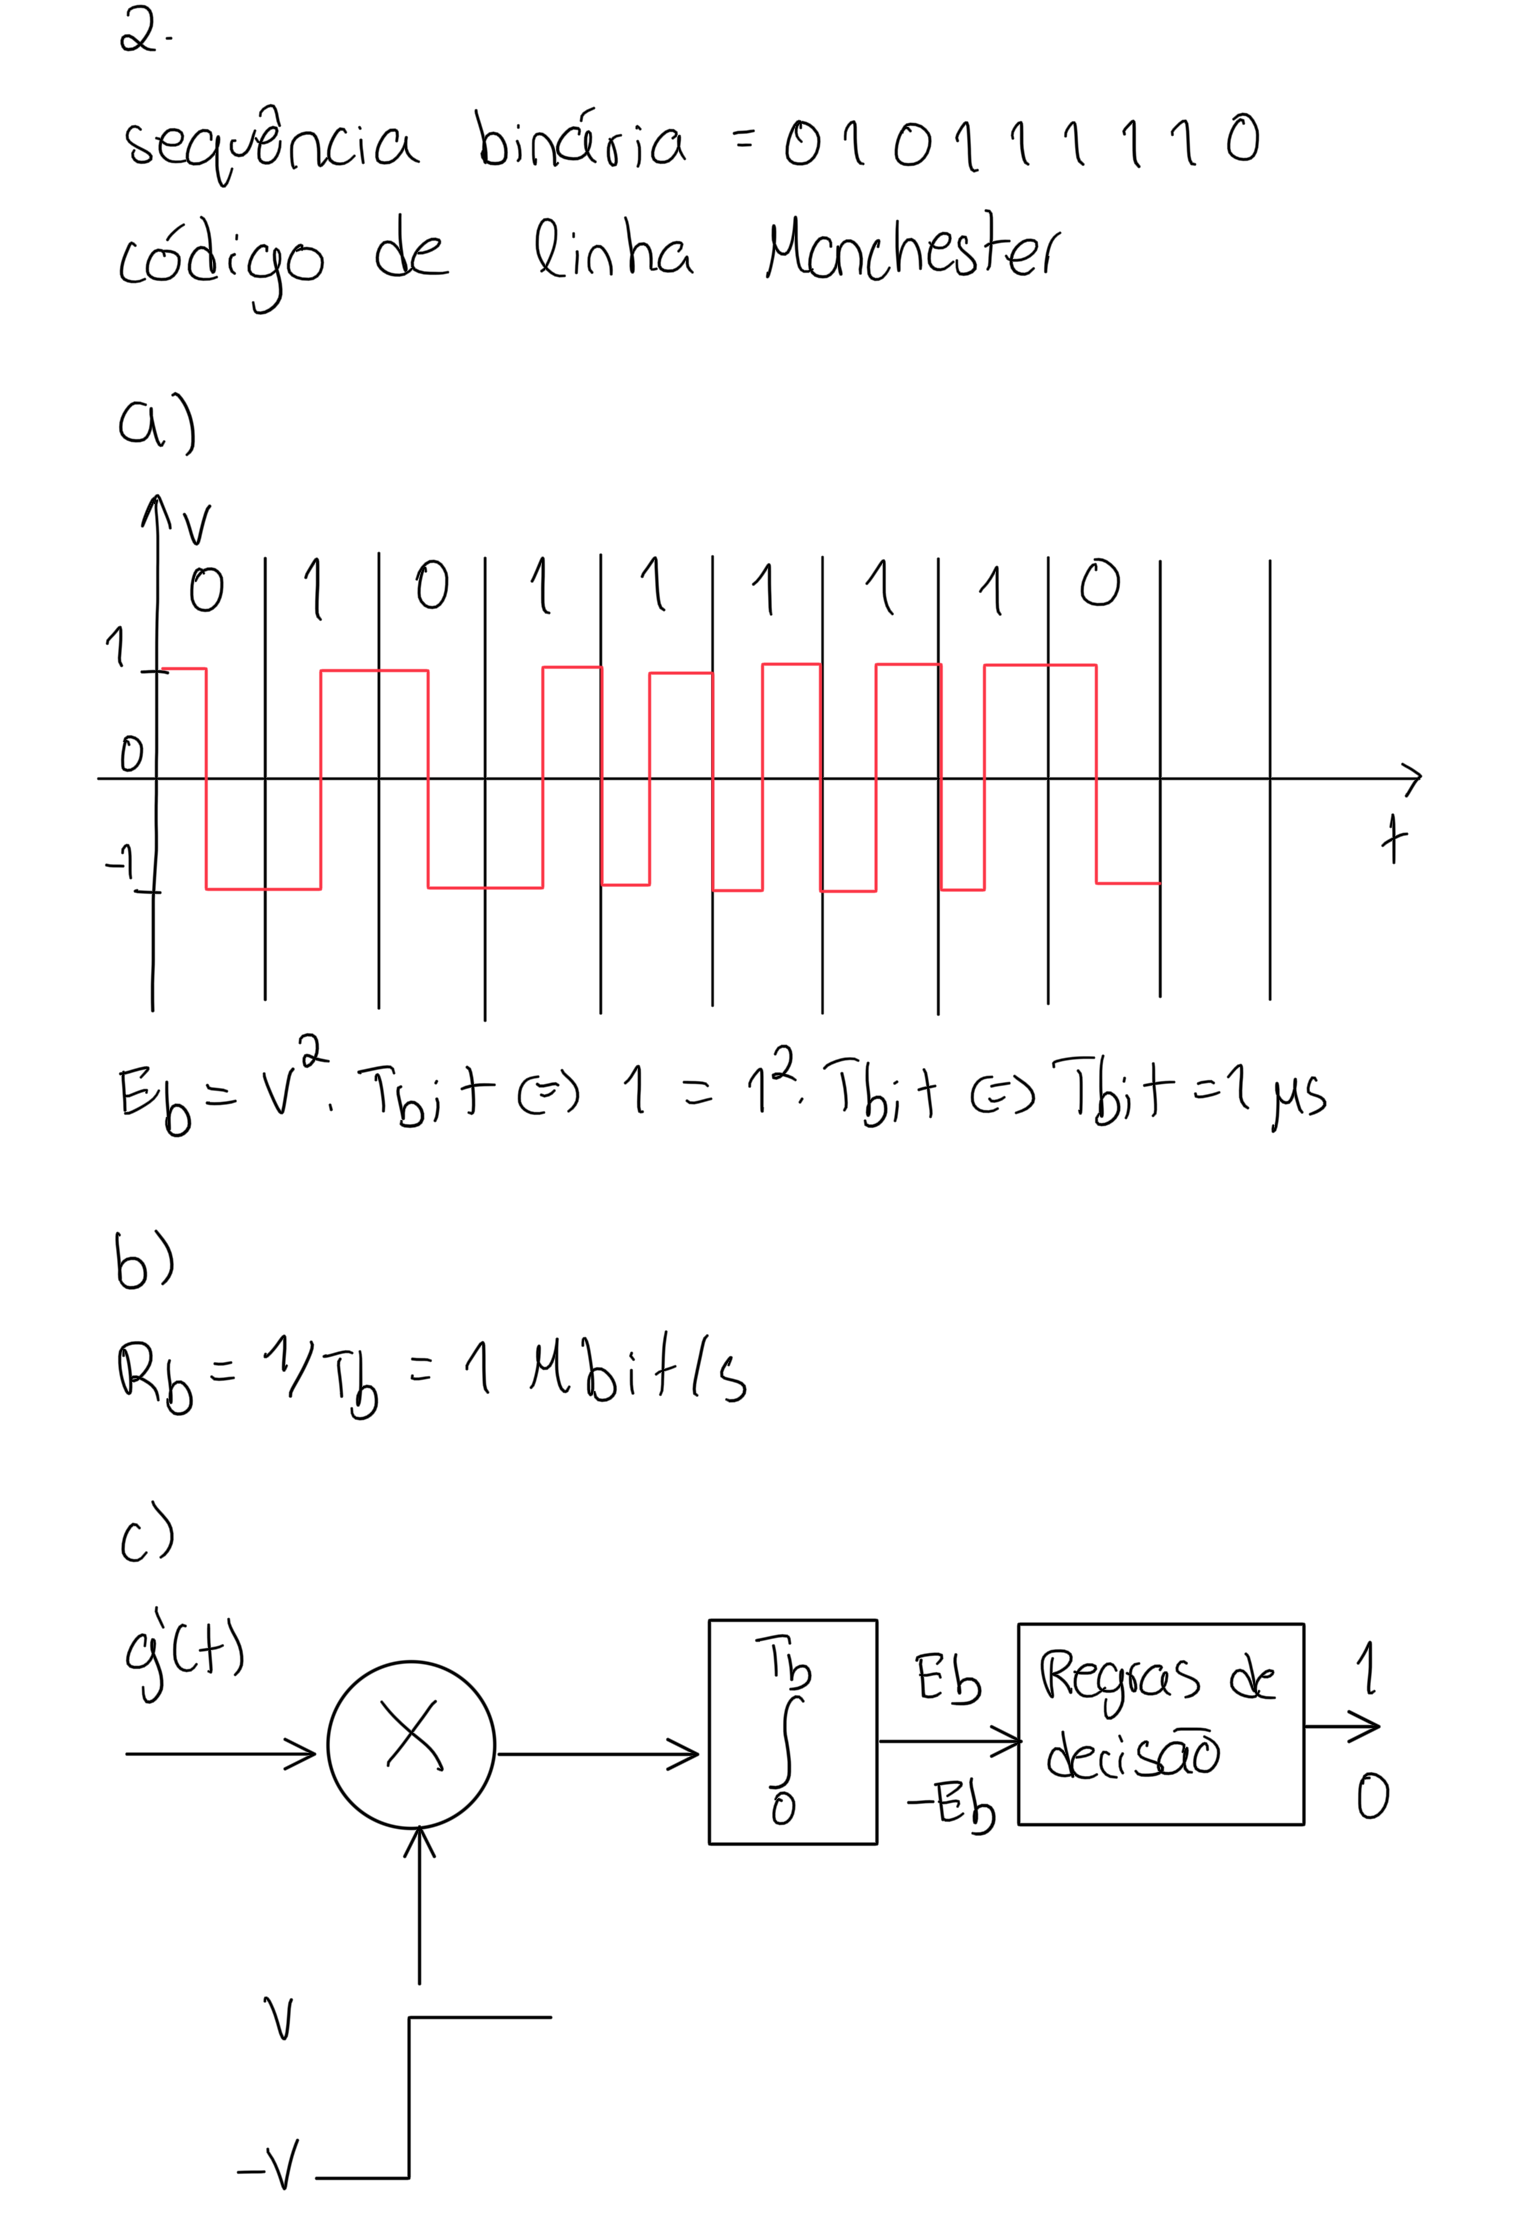 2.
sequência binária = 010111110
código de linha Manchester
a)
V
0 1 0 1 1 1 1 1 0
1
0
-1
t
Eb = V². Tbit ⇔ 1 = 1². Tbit ⇔ Tbit = 1 μs
b)
Rb = 1/Tb = 1 Mbit/s
c)
g'(t)
X
Tb
∫
0
Eb
-Eb
Regras de
decisão
1
0
V
-V